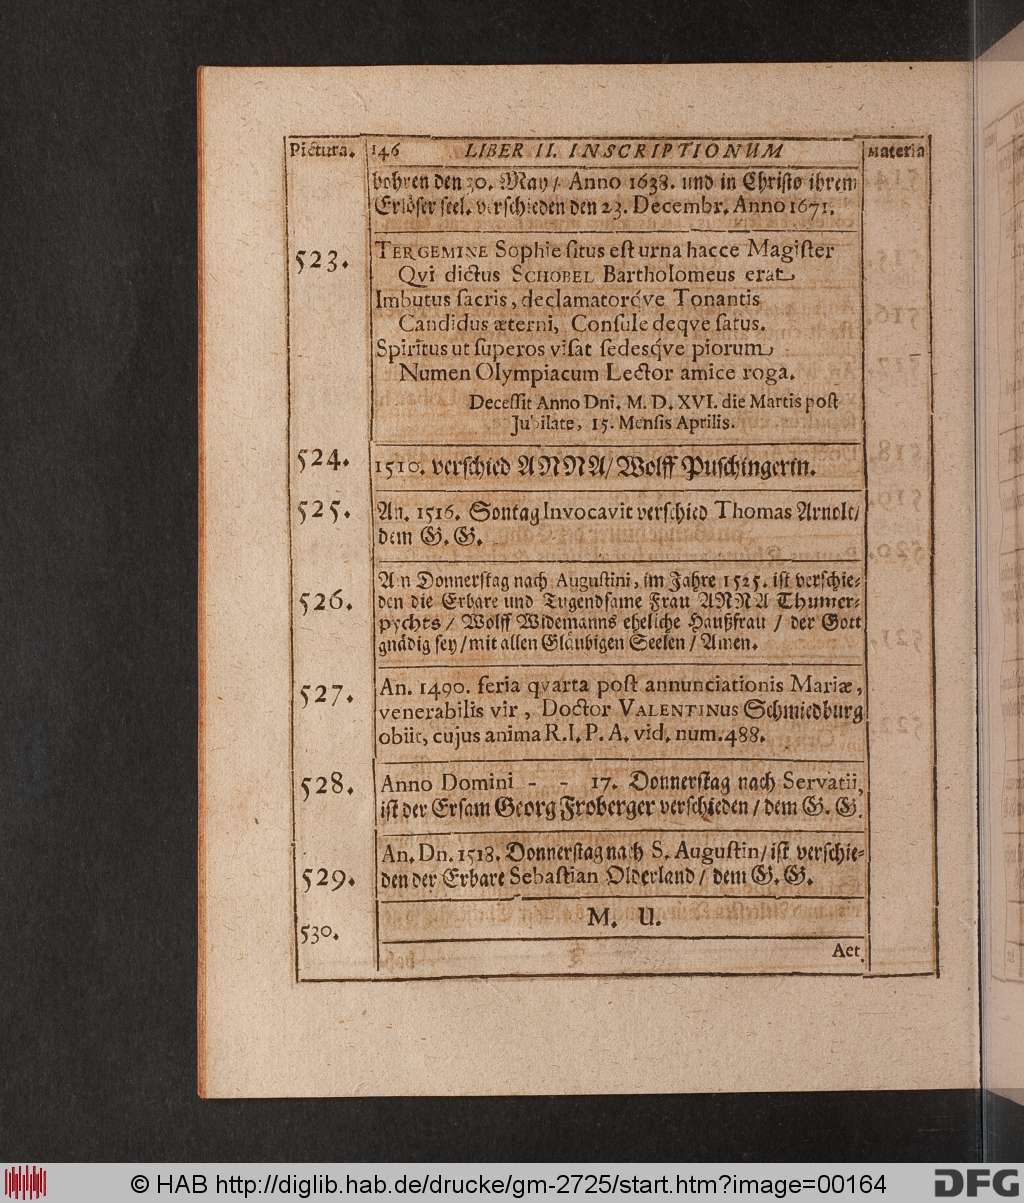 Pictura. 146 LIBER II. INSCRIPTIONUM Materia
bohren den 30. May / Anno 1638. und in Christo ihrem
Erlöser seel. verschieden den 23. Decembr. Anno 1671.
523. TERGEMINE Sophie situs est urna hacce Magister
Qvi dictus SCHOBEL Bartholomeus erat
Imbutus sacris, declamatorq́ve Tonantis
Candidus æterni, Consule deqve satus.
Spiritus ut superos visat sedesq́ve piorum
Numen Olympiacum Lector amice roga.
Decessit Anno Dni. M. D. XVI. die Martis post
Jubilate, 15. Mensis Aprilis.
524. 1510. verschied ANNA / Wolff Puschingerin.
525. An. 1516. Sontag Invocavit verschied Thomas Arnolt /
dem G. G.
526. An Donnerstag nach Augustini, im Jahre 1525. ist verschie-
den die Erbare und Tugendsame Frau ANNA Thumer-
pychts / Wolff Widemanns eheliche Haußfrau / der Gott
gnädig sey / mit allen Gläubigen Seelen / Amen.
527. An. 1490. feria qvarta post annunciationis Mariæ,
venerabilis vir, Doctor VALENTINUS Schmiedburg
obiit, cujus anima R. I. P. A. vid. num. 488.
528. Anno Domini - - 17. Donnerstag nach Servatii,
ist der Ersam Georg Froberger verschieden / dem G. G.
529. An. Dn. 1518. Donnerstag nach S. Augustin / ist verschie-
den der Erbare Sebastian Olderland / dem G. G.
530. M. U.
Aet.
© HAB http://diglib.hab.de/drucke/gm-2725/start.htm?image=00164 DFG